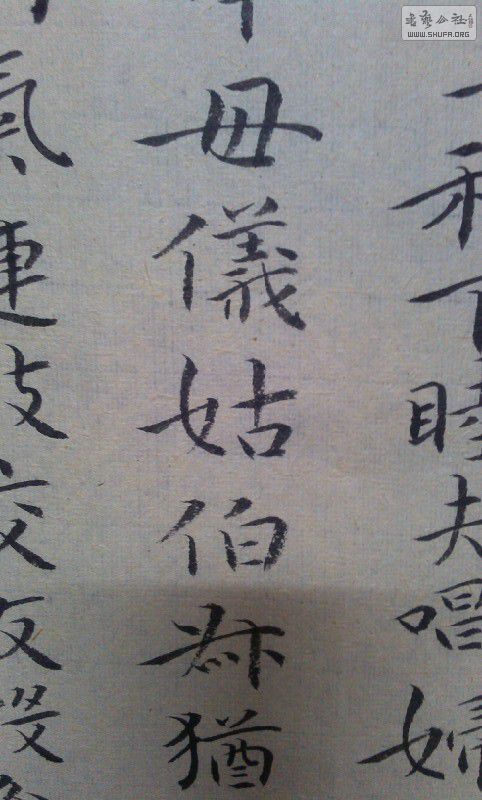 和下睦夫唱婦
母儀姑伯叔猶
氣連枝交友投
书艺公社
WWW.SHUFA.ORG